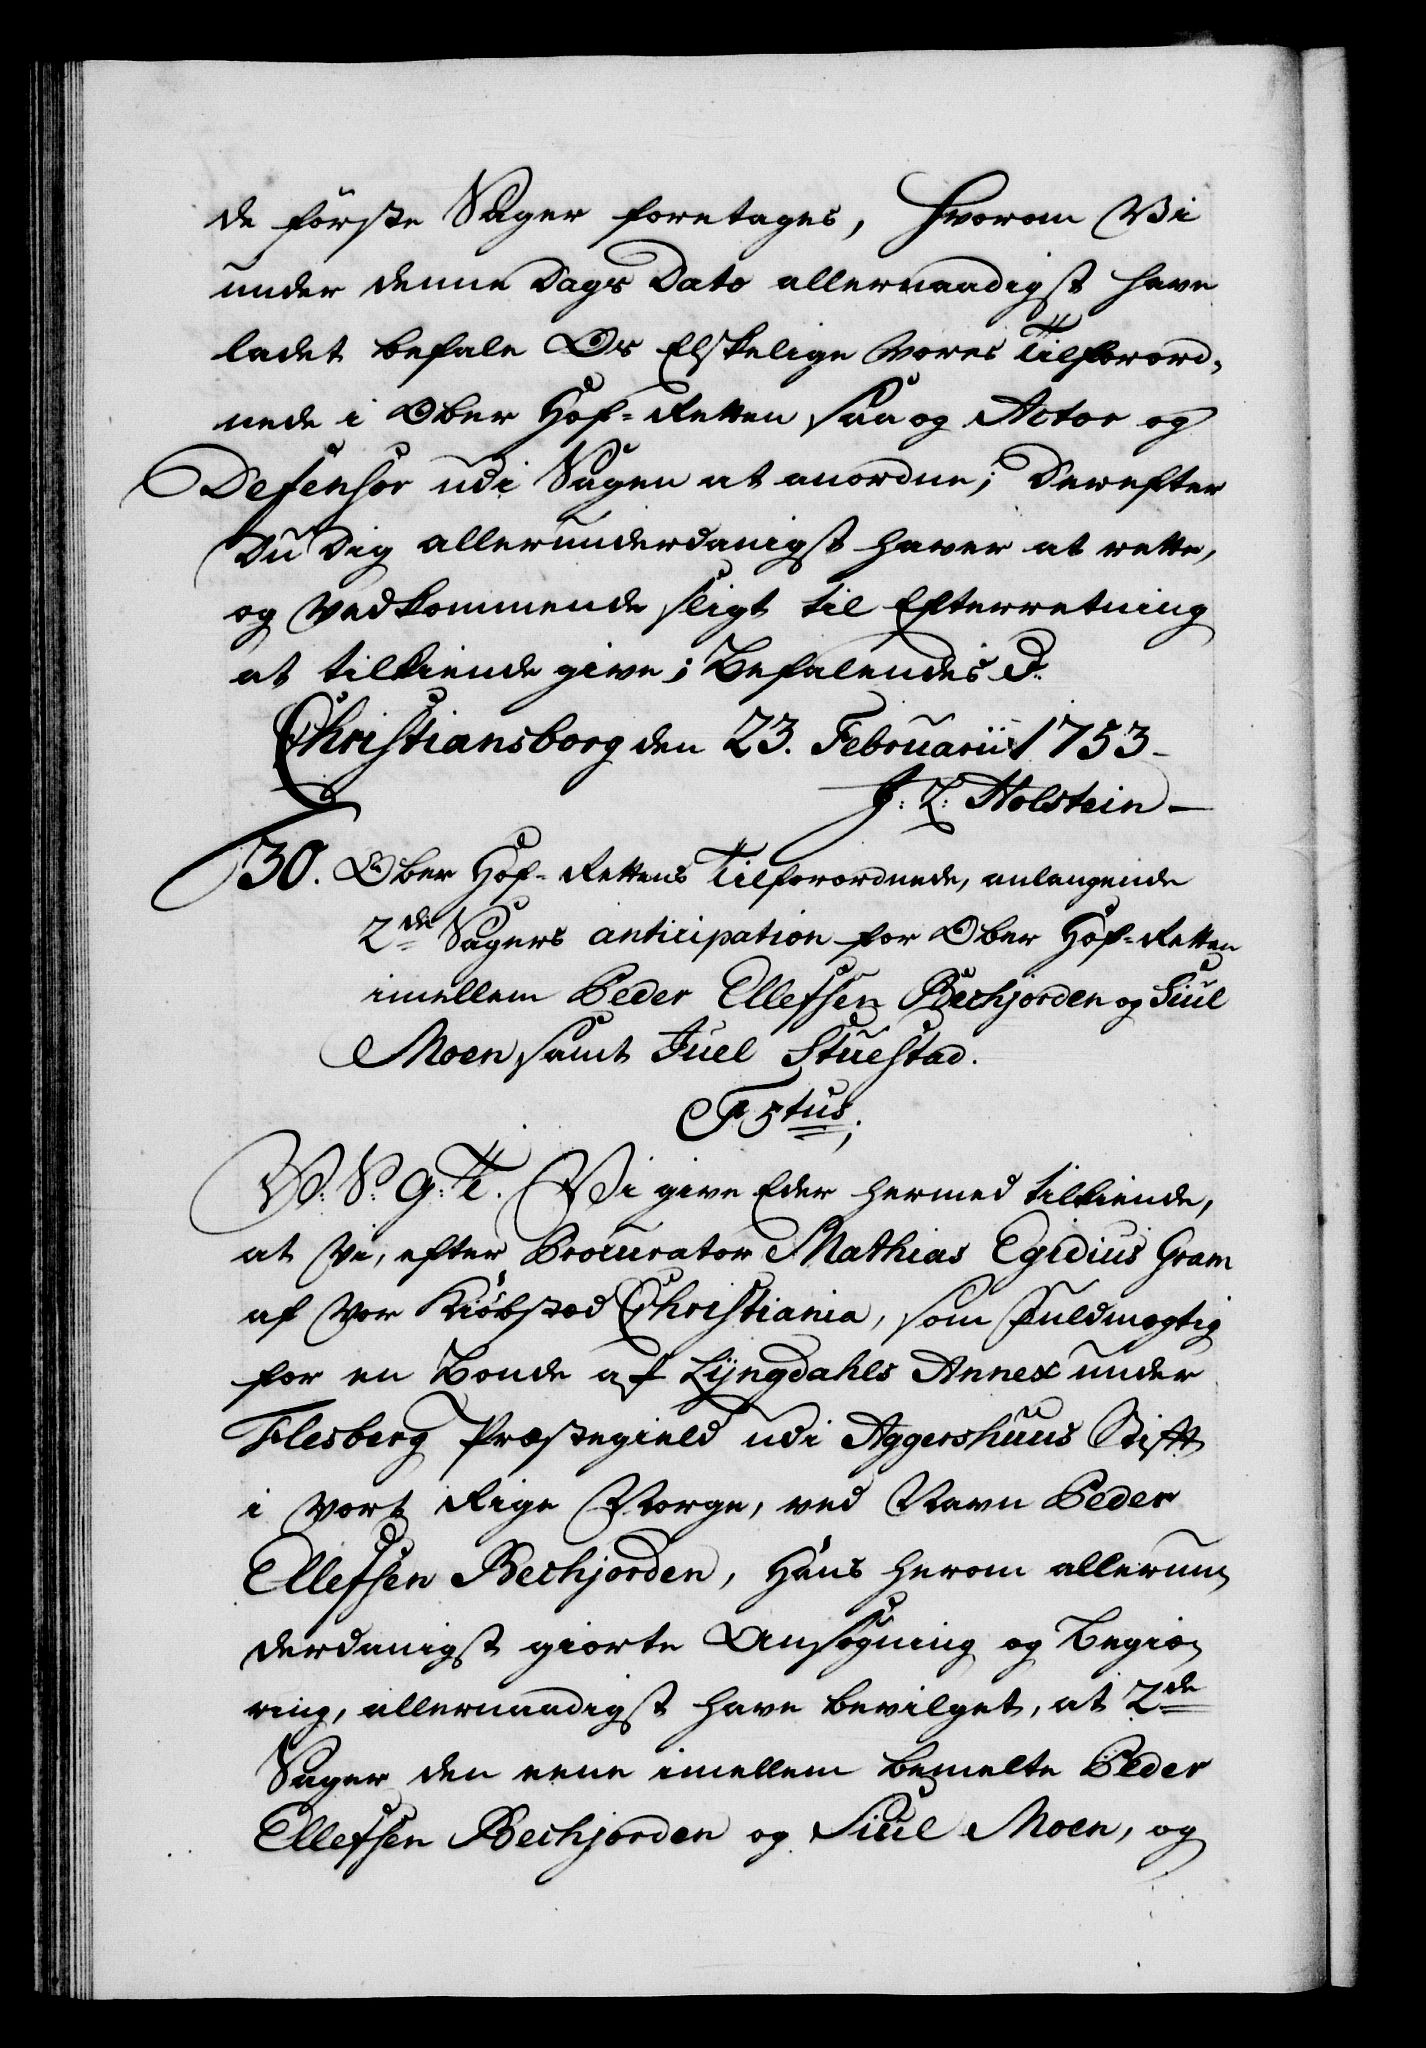 de förste Sager foretages, Hvorom Vi
under denne Dags Dato allernaadigst have
ladet befale Os Elskelige Vores Tilforord-
nede i Ober Hof-Retten saa og Actor og
Defensor udi Sagen at anordne; Derefter
Du Dig allerunderdanigst haver at rette,
og Vedkommende sligt til Efterretning
at tilkiende give; Befalendes &.
Christiansborg den 23. Februarii 1753-
J: L: Holstein-
30. Ober Hof-Rettens Tilforordnede, anlangende
2de Sagers anticipation for Ober Hof-Retten
imellem Peder Ellefsen Bechjorden og Siul
Moen samt Juel Stuestad.
F 5tus;
V: S: G: T. Vi give Eder hermed tilkiende,
at Vi, efter Procurator Mathias Egidius Gram
af Vor Kiöbstæd Christiania, som Fuldmægtig
for en Bonde af Lyngdahls Annex under
Flesberg Præstegield udi Aggershuus Stift
i Vort Rige Norge, ved Navn Peder
Ellefsen Bechjorden, Hans herom allerun-
derdanigst giorte Ansøgning og Begiæ-
ring, allernaadigst have bevilget, at 2de
Sager den eene imellem bemelte Peder
Ellefsen Bechjorden og Siul Moen, og